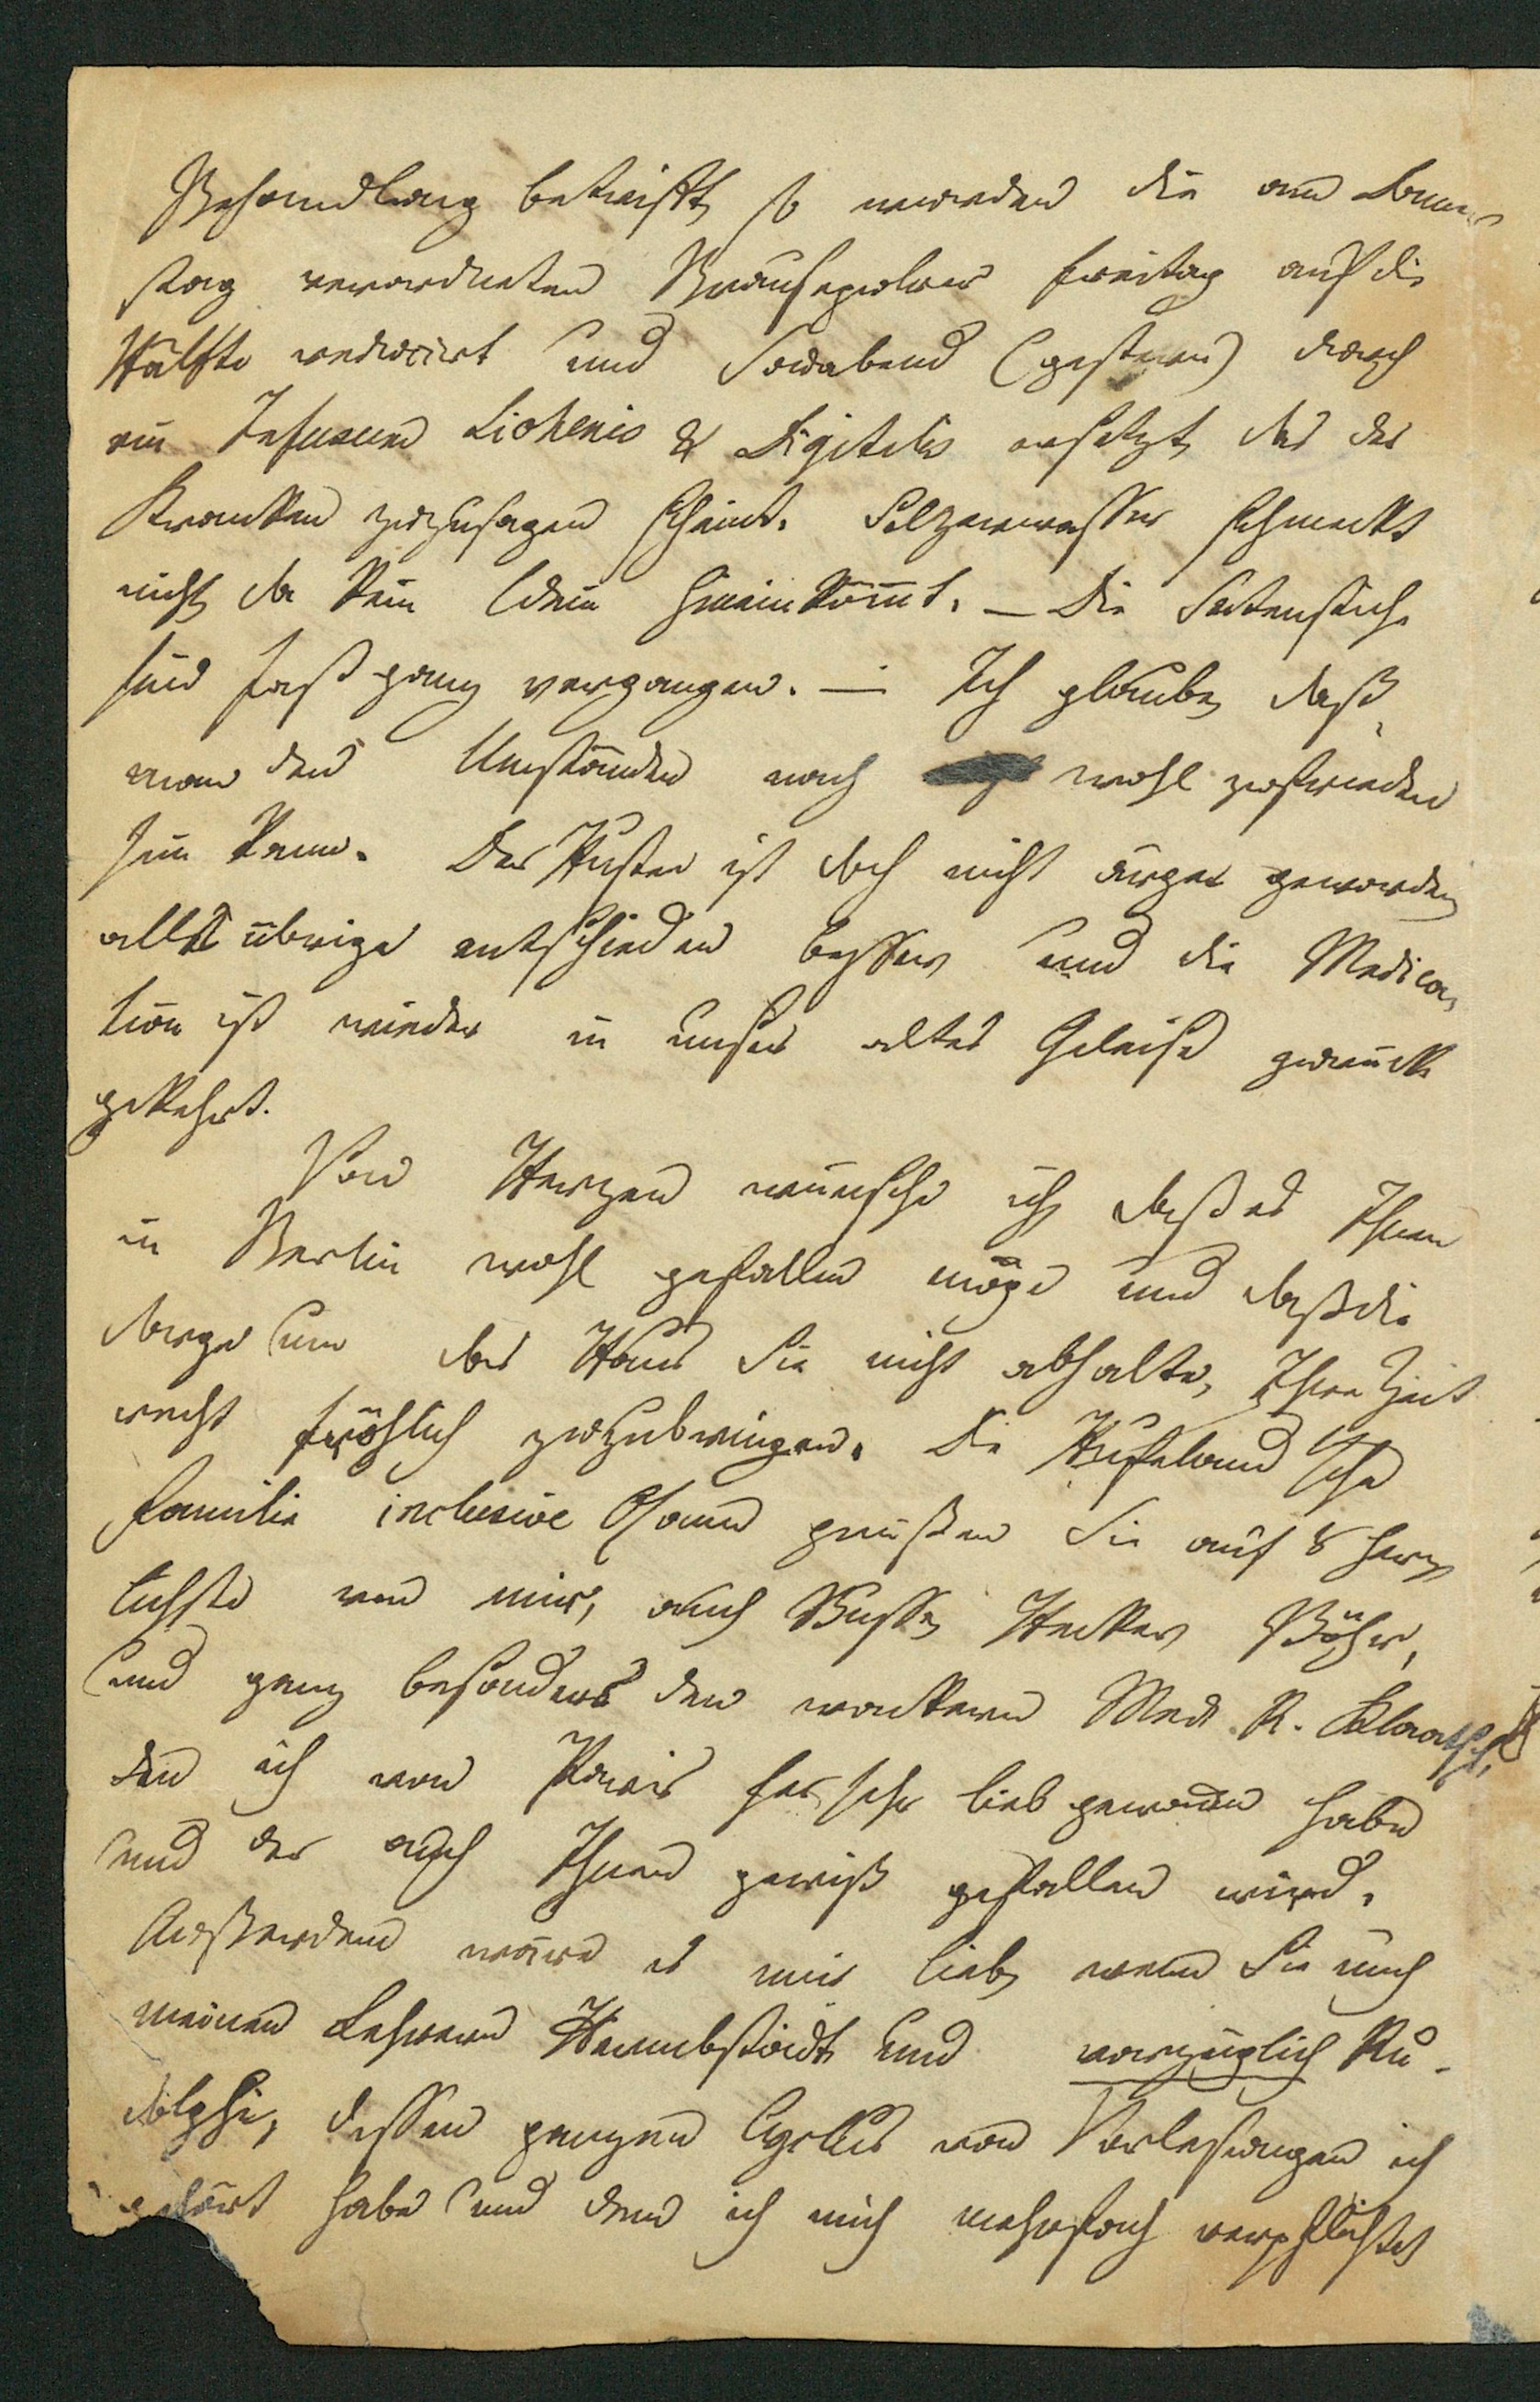 Behandlung betrifft, so wurden die am Donners
tag verordneten Brausepulver Freitag auf die
Hälfte reducirt und Sonabend (gestern) durch
ein Infusum Lichenis & Digitalis ersetzt, das der
Kranken zuzusagen scheint. Selzerwasser schmeckt
nicht, da kein Wein hineinkömmt. — Die Seitenstiche
sind fast ganz vergangen. — Ich glaube, daß
man den Umständen nach wohl zufrieden
sein kann. Der Husten ist doch nicht ärger geworden,
alles übrige entschieden besser, und die Medica-
tion ist wieder in unser altes Geleise zurück
gekehrt.
Von Herzen wünsche ich, daß es Ihnen
in Berlin wohl gefallen möge und daß die
Sorge um das Haus Sie nicht abhalte, Ihre Zeit
recht fröhlich zuzubringen. Die Hufelandsche
Familie inclusive Osann grüßen Sie auf's herz-
lichste von mir, auch Busse, Hecker, Böhr,
und ganz besonders den wackern Med. R. Klaatsch,
den ich von Paris her sehr lieb gewonnen habe
und der auch Ihnen gewiß gefallen wird.
Außerdem wäre es mir lieb, wenn Sie auch
meinen Lehrern Hermbstädt und vorzüglich Ru-
dolphi, dessen ganzen Cyclus von Vorlesungen ich
gehört habe und dem ich mich mehrfach verpflichtet